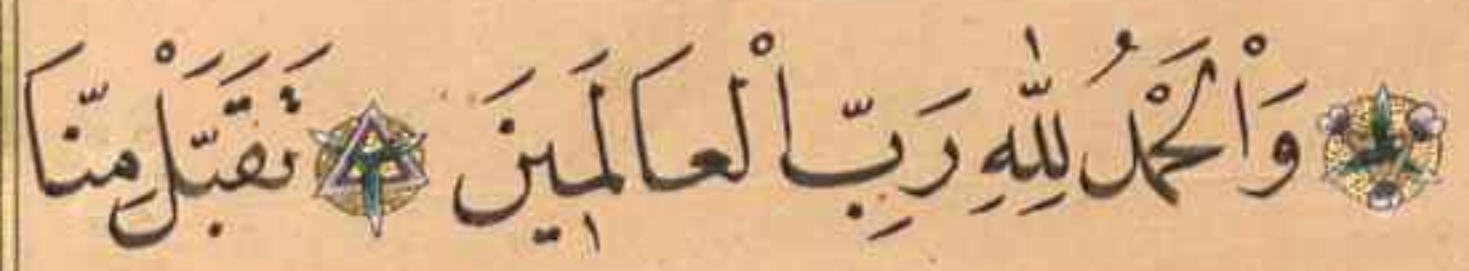 وَاْلحَمْدُ لِلّٰهِ رَبِّ اْلعَالَمِينَ تَقَبَّلْ مِنَّا